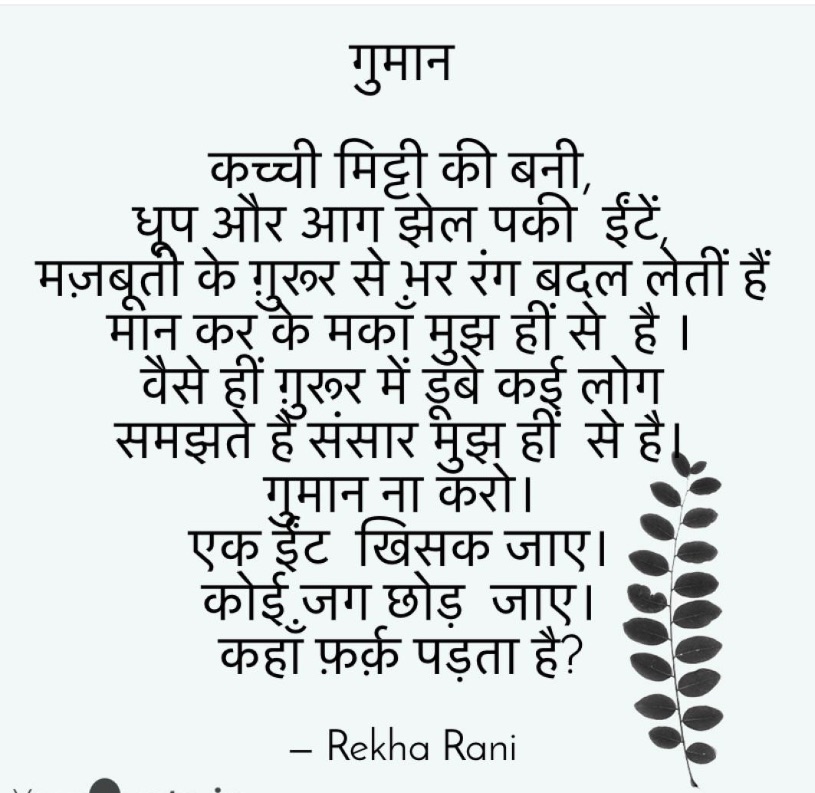 गुमान
कच्ची मिट्टी की बनी,
धूप और आग झेल पकी ईंटें,
मज़बूती के ग़ुरूर से भर रंग बदल लेतीं हैं
मान कर के मकाँ मुझ हीं से है ।
वैसे हीं ग़ुरूर में डूबे कई लोग
समझते हैं संसार मुझ हीं से है।
गुमान ना करो।
एक ईंट खिसक जाए।
कोई जग छोड़ जाए।
कहाँ फ़र्क़ पड़ता है?
– Rekha Rani